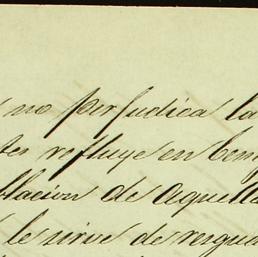 no perjudica la
refluye en
blacion de aquella
le sirve de resgua